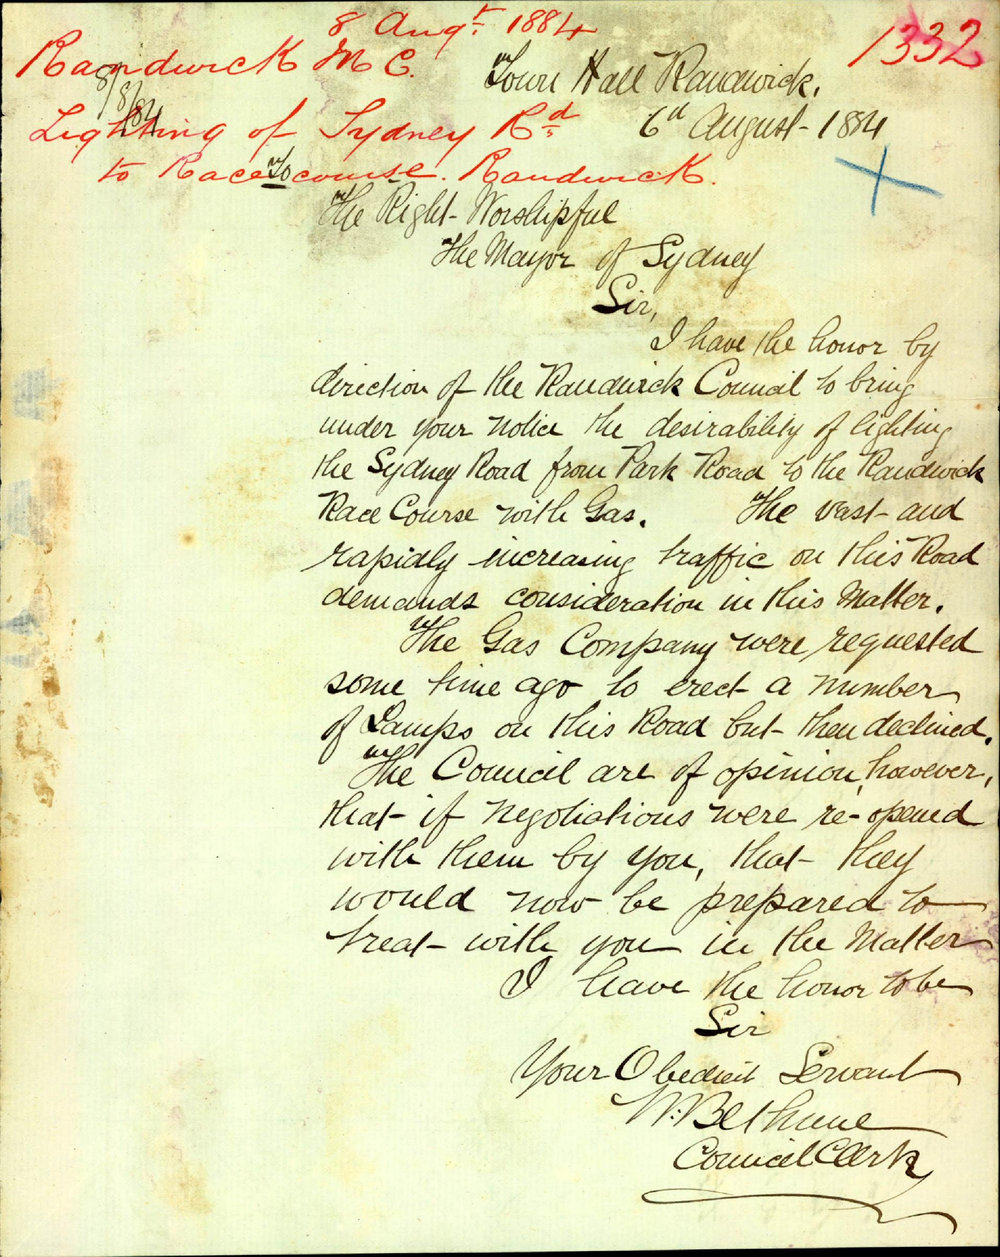 8 Augt 1884
1332
Randwick M C.
8/8/84
Town Hall Randwick.
Lighting of Sydney Rd
6th August - 1884
to Race course. Randwick.
To
The Right Worshipful
The Mayor of Sydney
Sir,
I have the honor by
direction of the Randwick Council to bring
under your notice the desirability of lighting
the Sydney Road from Park Road to the Randwick
Race Course with Gas. The vast and
rapidly increasing traffic on this Road
demands consideration in this Matter.
The Gas Company were requested
some time ago to erect a number
of Lamps on this Road but then declined.
The Council are of opinion, however,
that if negotiations were re-opened
with them by you, that they
would now be prepared to
treat with you in the Matter
I have the honor to be
Sir
Your Obedient Servant
W. Bethune
Council Clerk